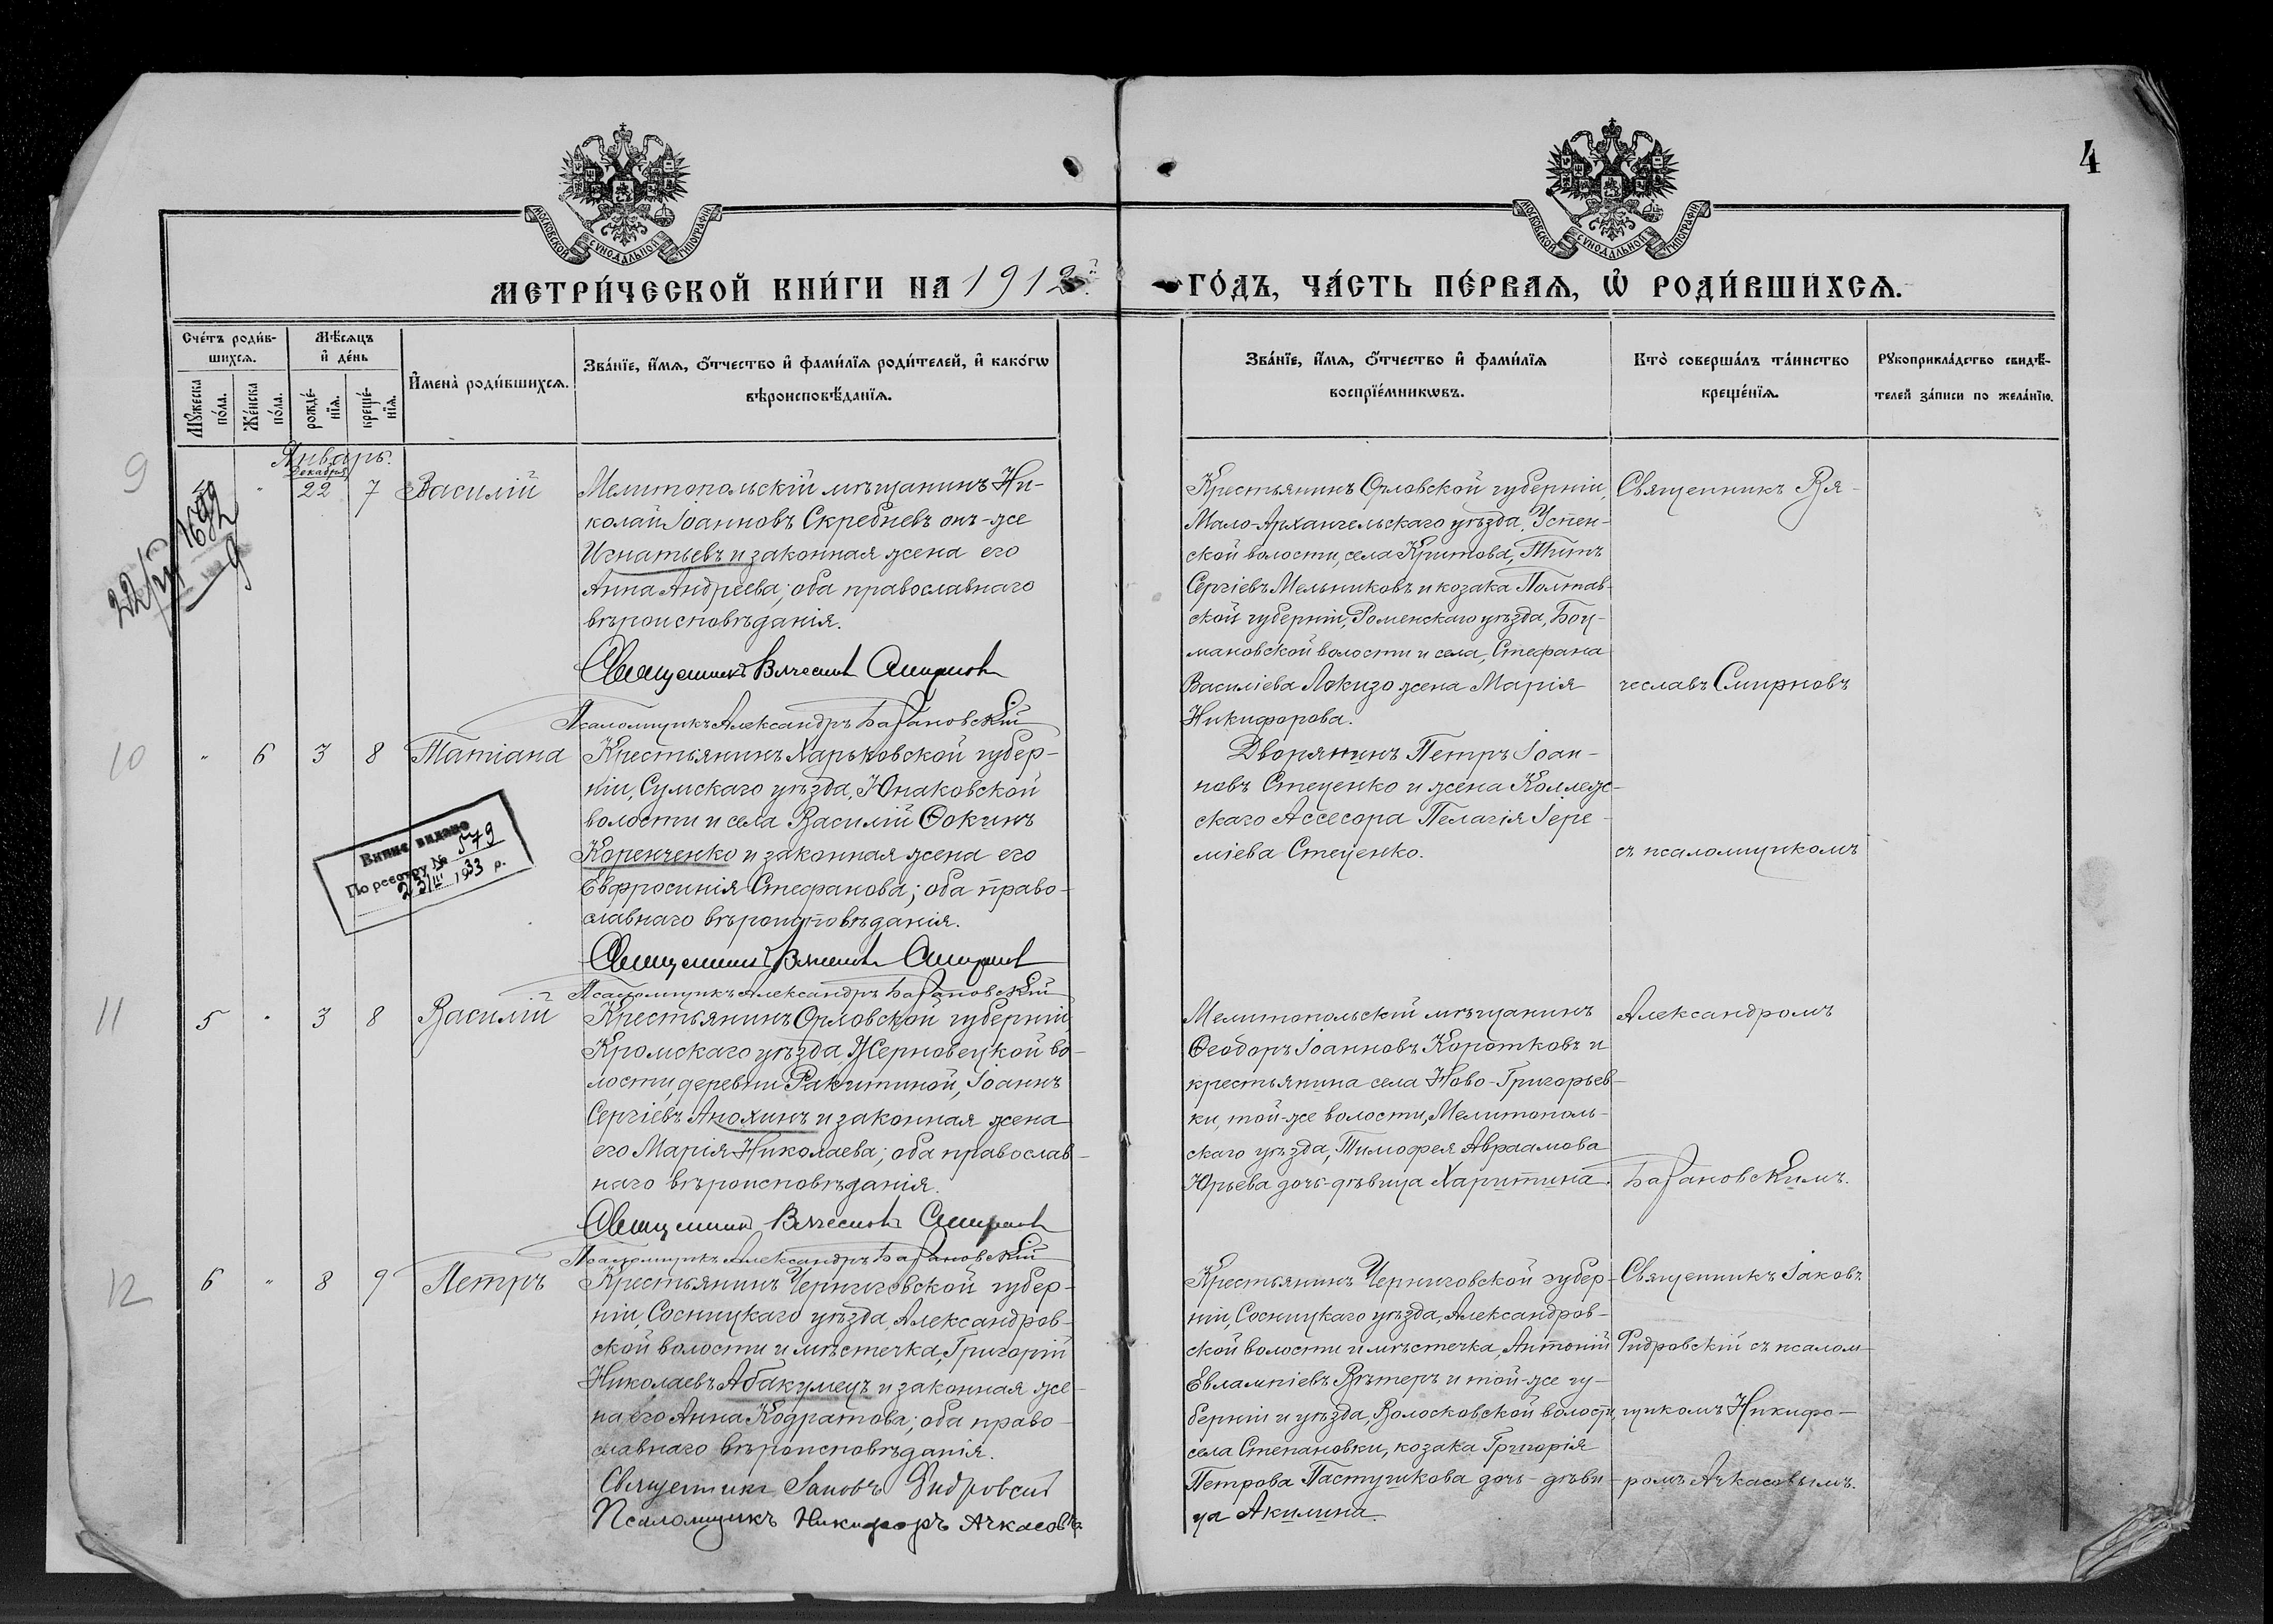 4
МОСКОВСКОЙ СѴНОДАЛЬНОЙ ТИПОГРАФІИ
МОСКОВСКОЙ СѴНОДАЛЬНОЙ ТИПОГРАФІИ
МЕТРИ́ЧЕСКОЙ КНИ́ГИ НА 1912й
ГО́ДЪ, ЧА́СТЬ ПЕ́РВАѦ, Ѡ҆ РОДИ́ВШИХСѦ.
Сче́тъ роди́в-
шихсѧ.
Мꙋжеска по́ла.
Же́нска по́ла.
Мѣ́сѧцъ
и҆ де́нь
рожде́-
нїѧ.
креще́-
нїѧ.
И҆мена̀ роди́вшихсѧ.
Зва́нїе, и҆́мѧ, ѻ҆́тчество и҆ фами́лїѧ роди́телей, и҆ како́гѡ
вѣроисповѣ́данїѧ.
Зва́нїе, и҆́мѧ, ѻ҆́тчество и҆ фами́лїѧ
воспрїе́мникѡвъ.
Кто̀ соверша́лъ та́инство
креще́нїѧ.
Рꙋкоприкла́дство свидѣ́-
телей за́писи по жела́нїю.
Январь.
Декабря
9
22 7 Василій
Мелитопольскій мѣщанинъ Ни-
колай Іоанновъ Скребневъ онъ-же
Игнатьевъ и законная жена его
Анна Андреева; оба православнаго
вѣроисповѣданія.
Священникъ Вячеславъ Смирновъ
Псаломщикъ Александръ Барановскій
Крестьянинъ Орловской губерніи,
Мало-Архангельскаго уѣзда, Успен-
ской волости, села Критова, Титъ
Сергіевъ Мельниковъ и козака Полтав-
ской губерніи, Роменскаго уѣзда, Боц-
мановской волости и села, Стефана
Василіева Локизо жена Марія
Никифорова.
Священникъ Вя-
чеславъ Смирновъ
10
" 6 3 8 Татіана
Крестьянинъ Харьковской губер-
ніи, Сумскаго уѣзда, Юнаковской
волости и села Василій Ѳокинъ
Коренченко и законная жена его
Евфросинія Стефанова; оба право-
славнаго вѣроисповѣданія.
Священникъ Вячеславъ Смирновъ
Псаломщикъ Александръ Барановскій
Випис видано
По реєстру № 579
23/III 1933 р.
Дворянинъ Петръ Іоан-
новъ Стеценко и жена Коллеж-
скаго Ассесора Пелагія Іере-
міева Стеценко.
съ псаломщикомъ
11
5 " 3 8 Василій
Крестьянинъ Орловской губерніи,
Кромскаго уѣзда, Жерновецкой во-
лости, деревни Ракитиной, Іоаннъ
Сергіевъ Анохинъ и законная жена
его Марія Николаева; оба православ-
наго вѣроисповѣданія.
Священникъ Вячеславъ Смирновъ
Псаломщикъ Александръ Барановскій
Мелитопольскій мѣщанинъ
Ѳеодоръ Іоанновъ Коротковъ и
крестьянина села Ново-Григорьев-
ки, той-же волости, Мелитополь-
скаго уѣзда, Тимофея Авраамова
Юрьева дочь-дѣвица Харитина.
Александромъ
Барановскимъ.
12
6 " 8 9 Петръ
Крестьянинъ Черниговской губер-
ніи, Сосницкаго уѣзда, Александров-
ской волости и мѣстечка, Григорій
Николаевъ Абакумецъ и законная же-
на его Анна Кодратова; оба право-
славнаго вѣроисповѣданія.
Священникъ Іаковъ Фидровскій
Псаломщикъ Никифоръ Ачкасовъ
Крестьянинъ Черниговской губер-
ніи, Сосницкаго уѣзда, Александров-
ской волости и мѣстечка, Антоній
Евлампіевъ Вѣтеръ и той-же гу-
берніи и уѣзда, Волосковской волости,
села Степановки, козака Григорія
Петрова Пастушкова дочь-дѣви-
ца Акилина.
Священникъ Іаковъ
Фидровскій съ псалом-
щикомъ Никифо-
ромъ Ачкасовымъ.